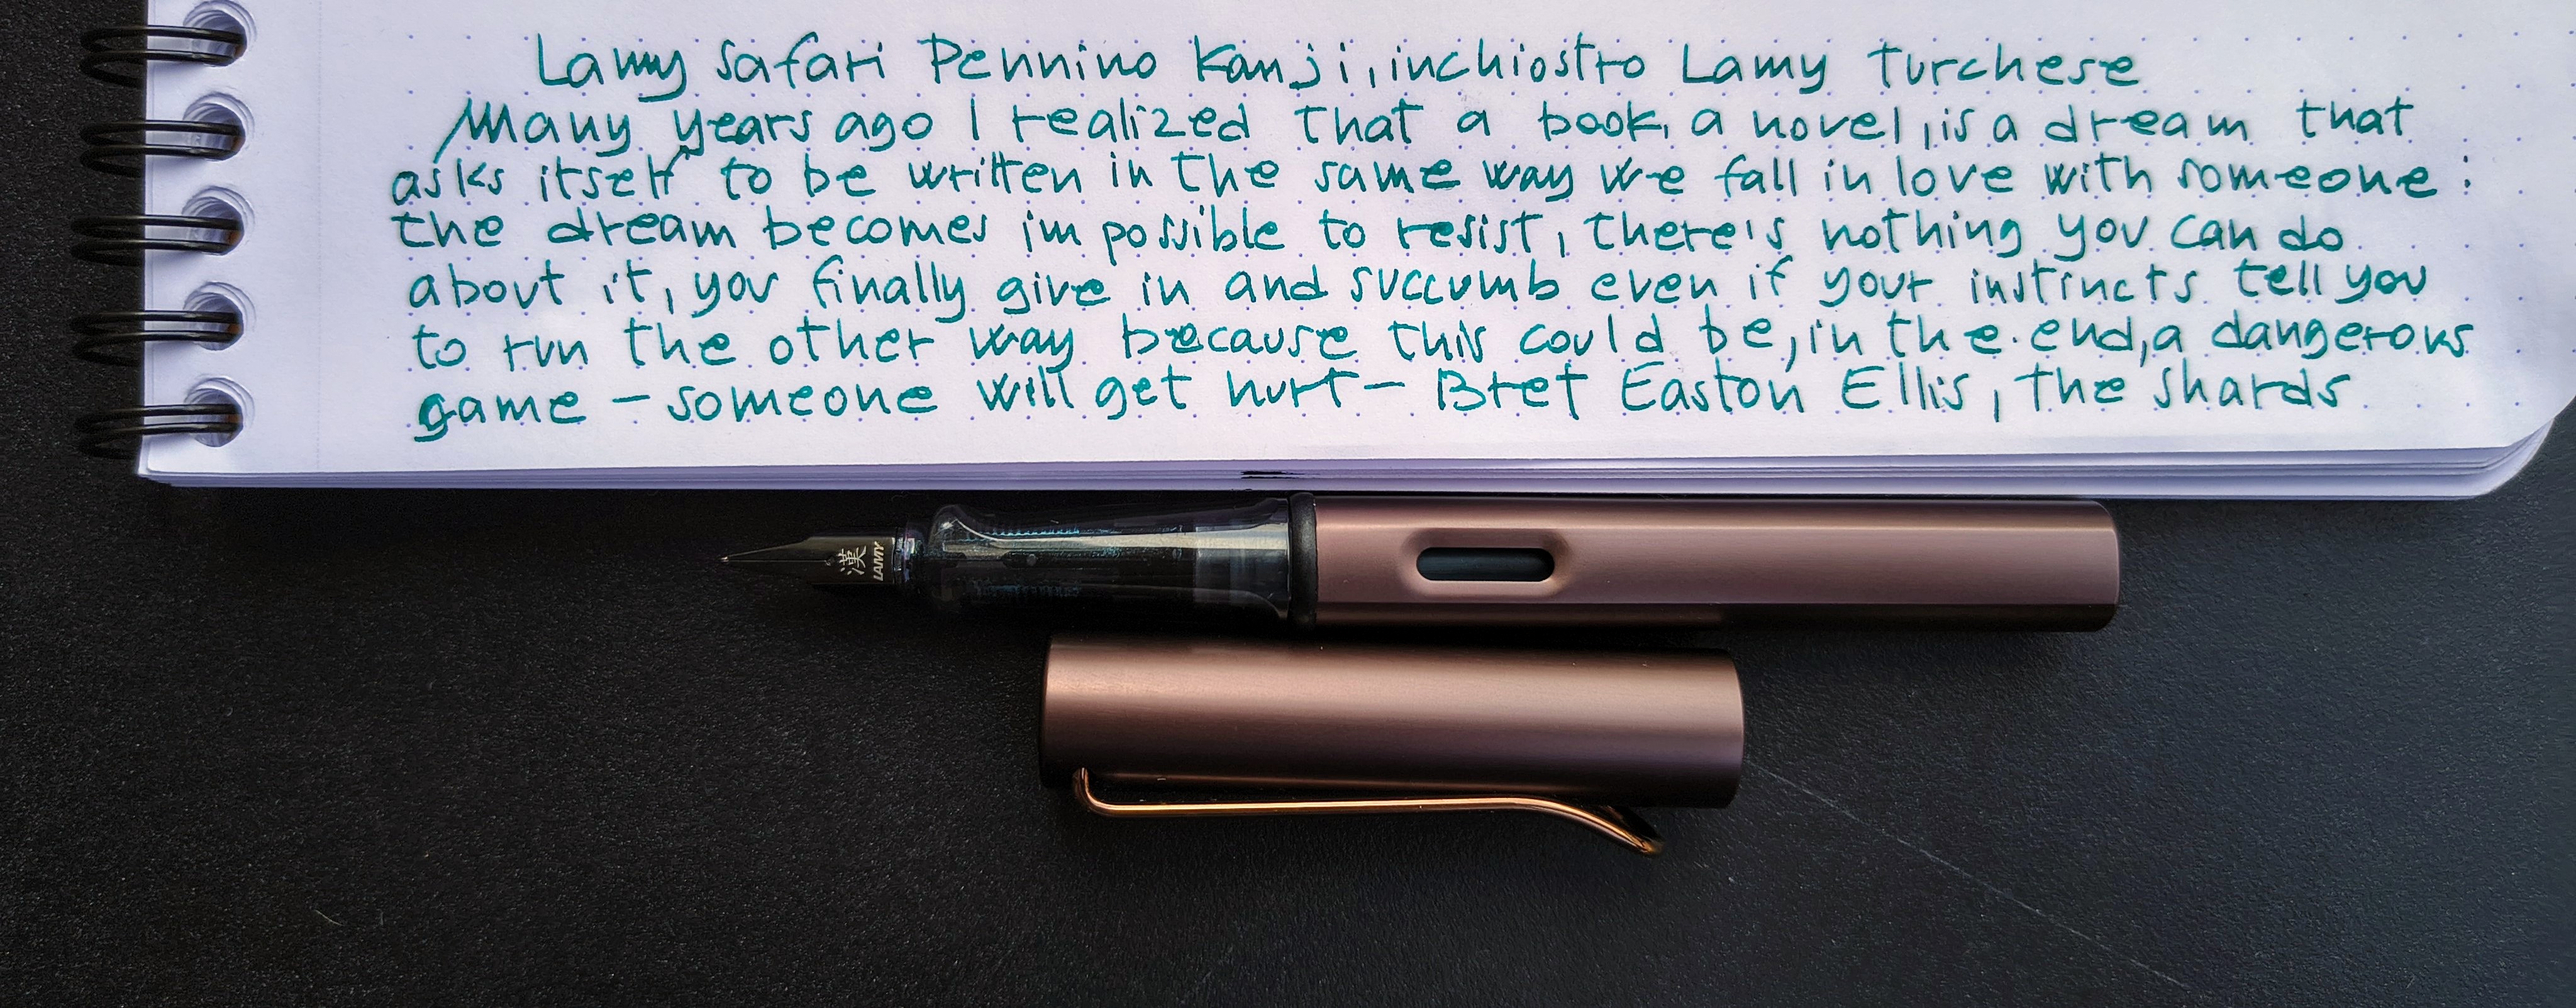 Lamy Safari Pennino Kanji, inchiostro Lamy Turchese
Many years ago I realized that a book, a novel, is a dream that
asks itself to be written in the same way we fall in love with someone:
the dream becomes impossible to resist, there's nothing you can do
about it, you finally give in and succumb even if your instincts tell you
to run the other way because this could be, in the end, a dangerous
game – someone will get hurt – Bret Easton Ellis, the shards
漢
LAMY